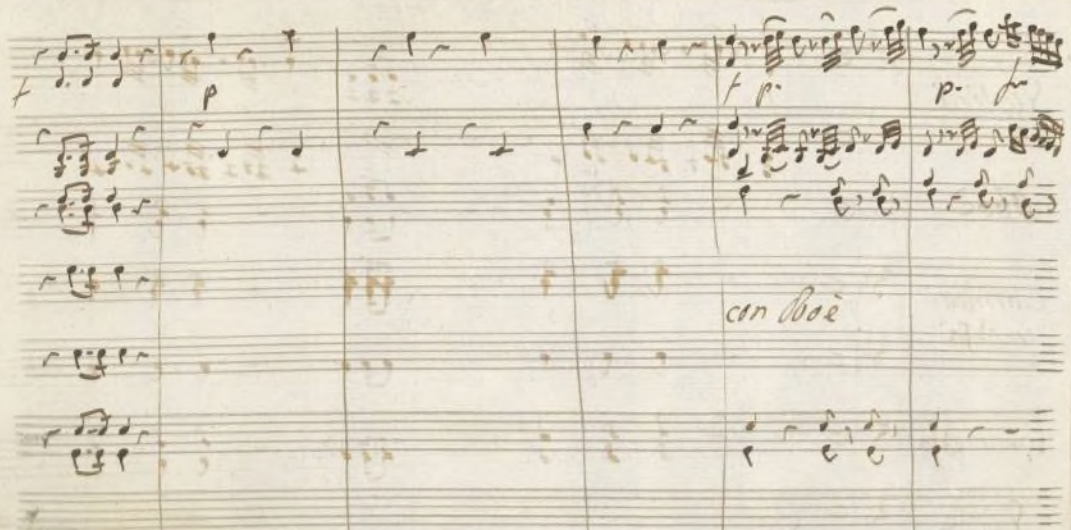 f p f p. p. fr
con Oboè